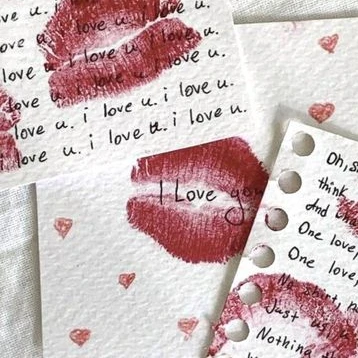 ve u. i love u. i love u.
ove u. i love u.
love u. i love u.
love u. i love u. i love u.
love u. i love u. i love u.
love u. i love u. i love u.
I Love you
Oh,
think
And
One love,
One love,
No
Just us
Nothing th